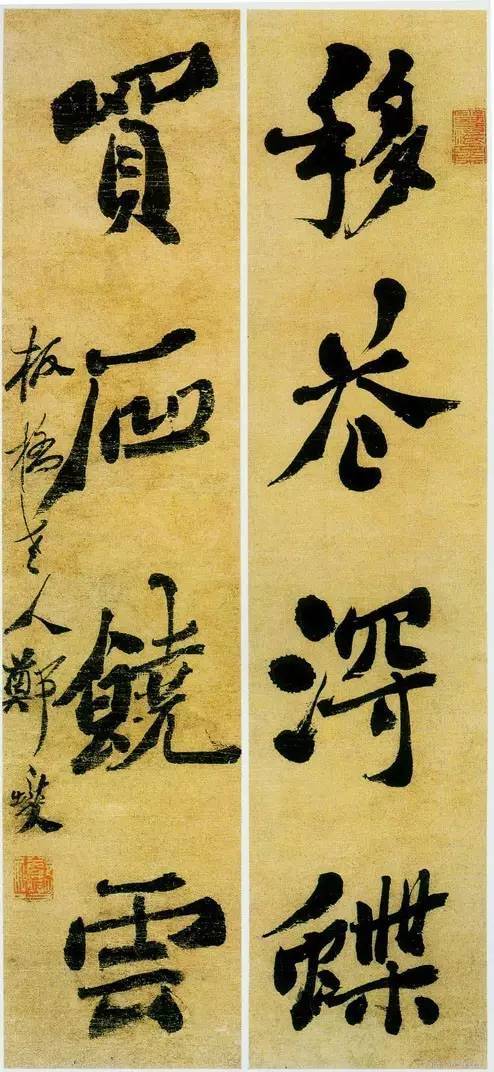 移花得蝶
買石饒雲
板橋老人鄭燮